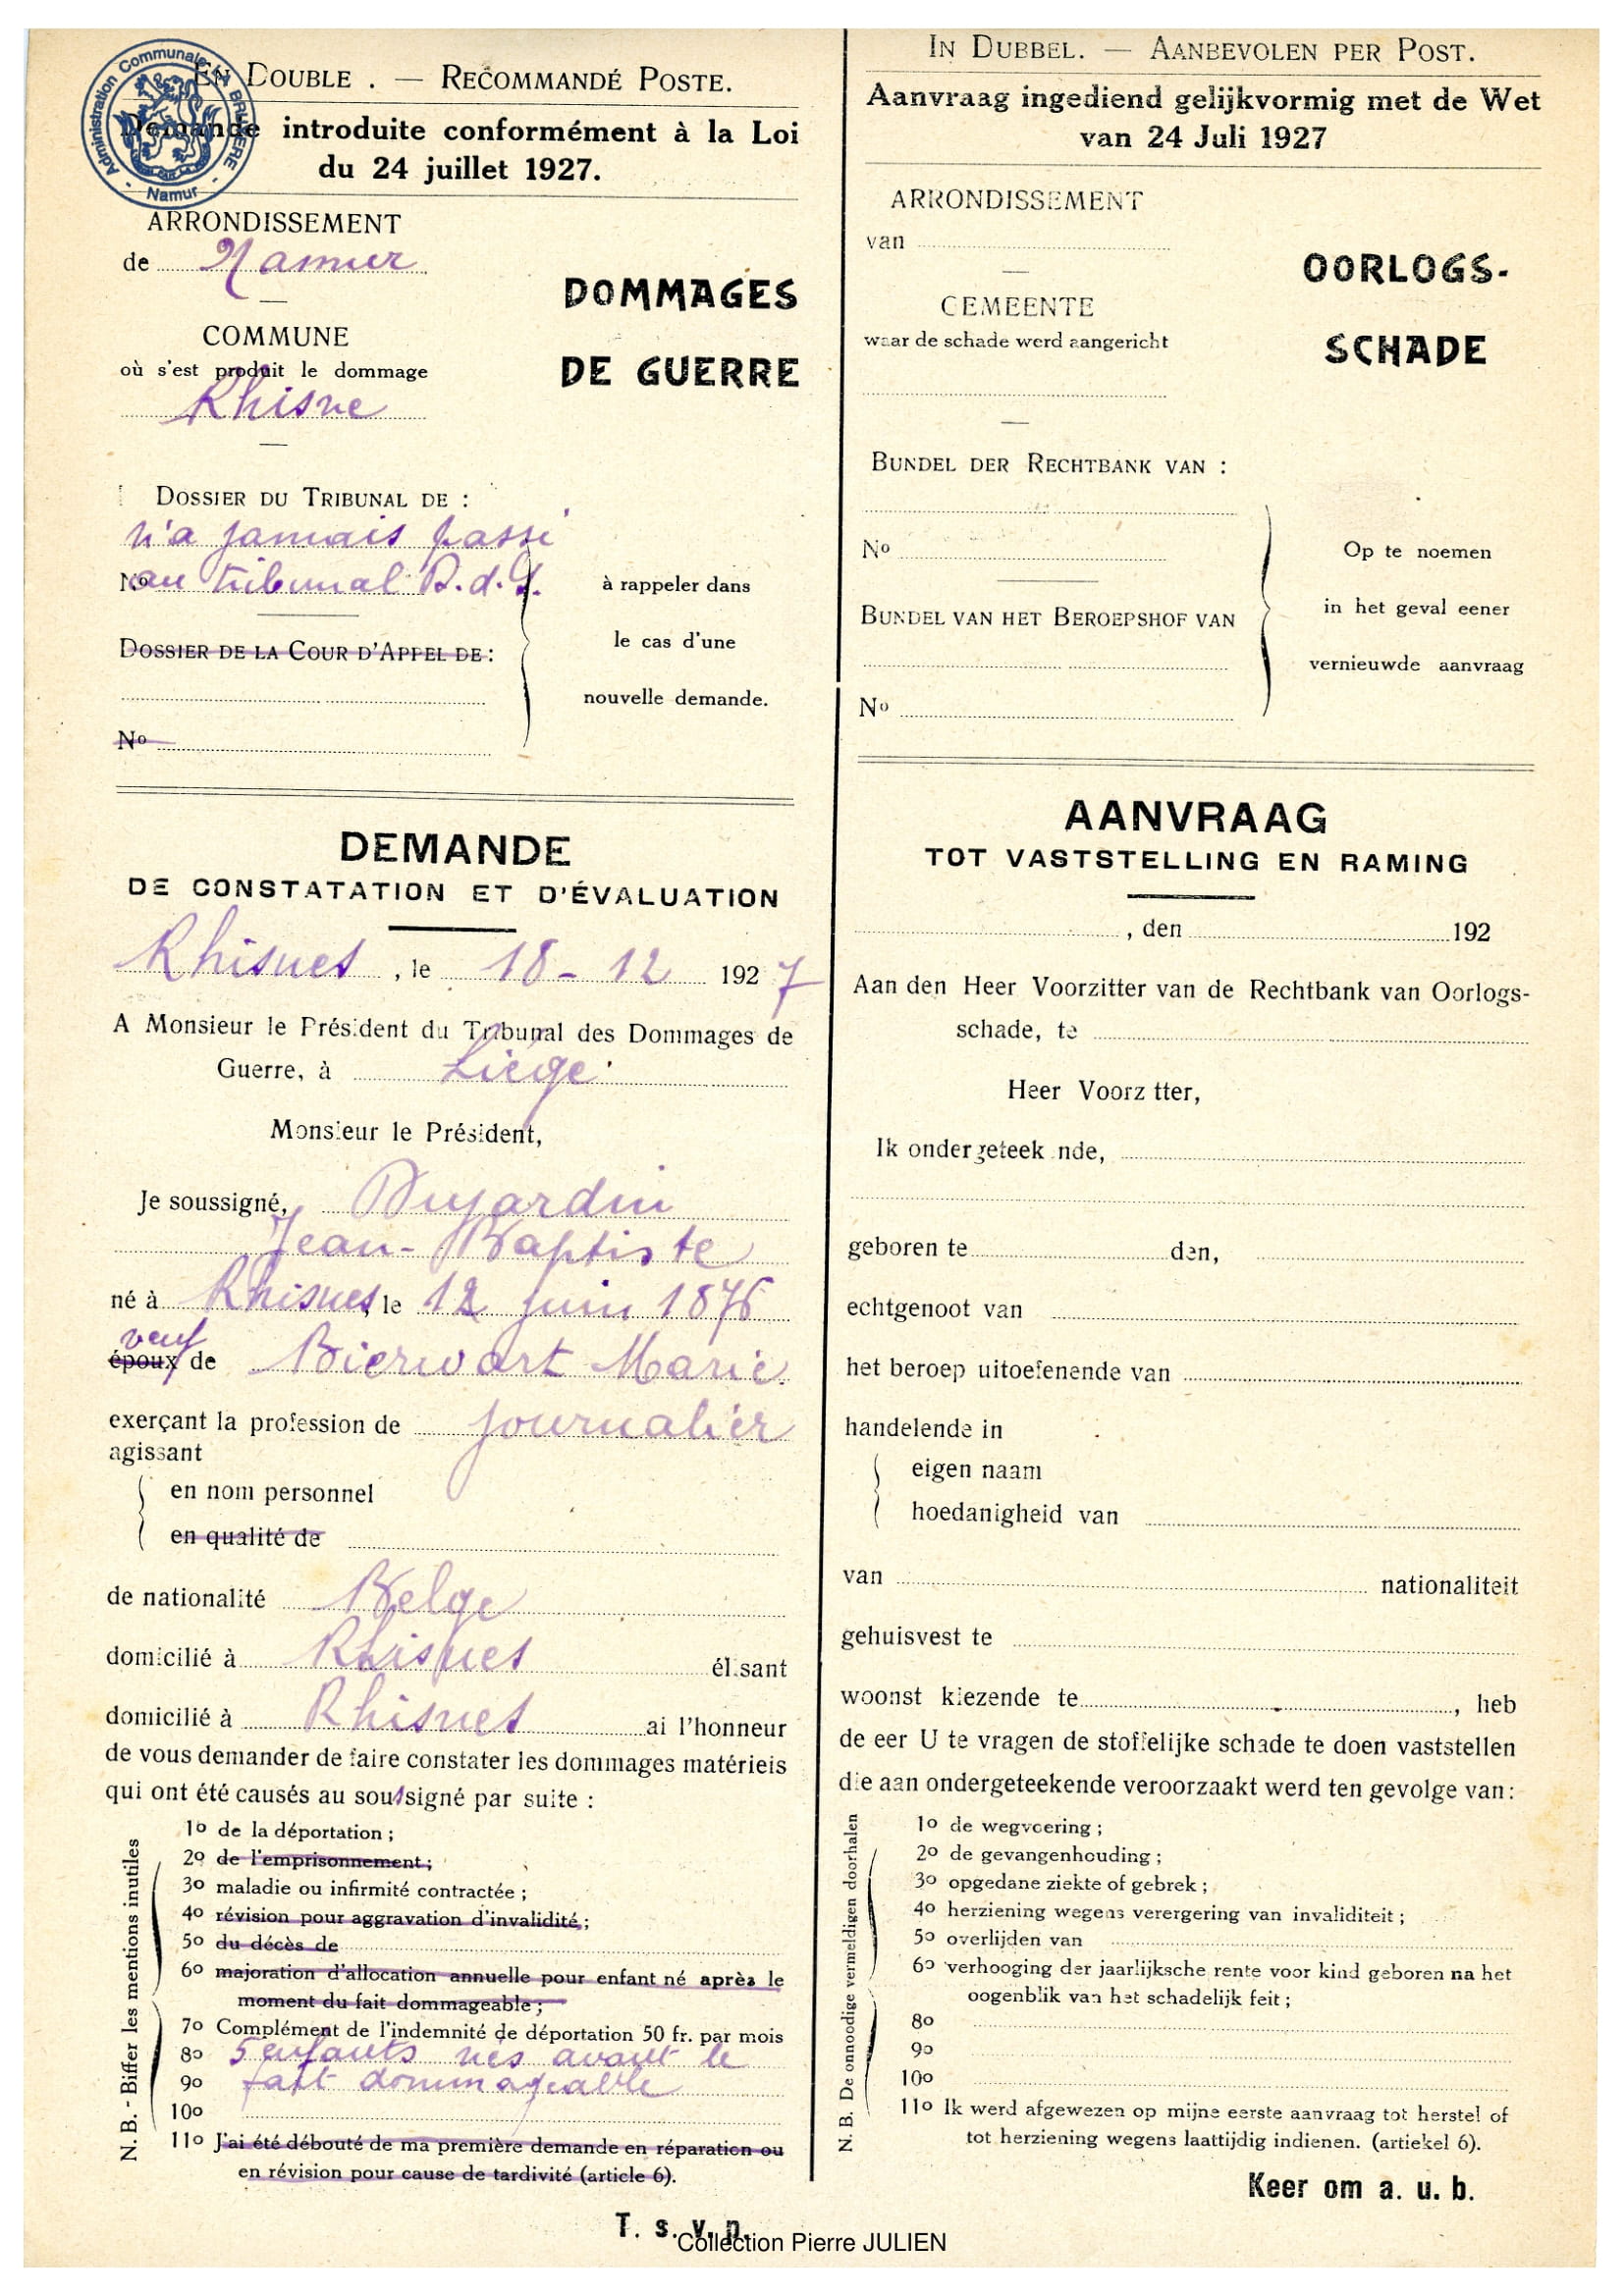 Administration Communale BRUYERE
- Namur -
EN DOUBLE . — RECOMMANDÉ POSTE.
Demande introduite conformément à la Loi
du 24 juillet 1927.
ARRONDISSEMENT
de Namur
COMMUNE
où s'est produit le dommage
Rhisne
DOMMAGES
DE GUERRE
DOSSIER DU TRIBUNAL DE :
n'a jamais passé
No au tribunal D.d.G.
DOSSIER DE LA COUR D'APPEL DE :
No
à rappeler dans
le cas d'une
nouvelle demande.
DEMANDE
DE CONSTATATION ET D'ÉVALUATION
Rhisnes, le 18-12 1927
A Monsieur le Président du Tribunal des Dommages de
Guerre, à Liége
Monsieur le Président,
Je soussigné, Dujardin
Jean-Baptiste
né à Rhisnes, le 12 juin 1876
veuf
époux de Bierwart Marie
exerçant la profession de journalier
agissant
en nom personnel
en qualité de
de nationalité Belge
domicilié à Rhisnes él.sant
domicilié à Rhisnes ai l'honneur
de vous demander de faire constater les dommages matériels
qui ont été causés au soussigné par suite :
N. B. - Biffer les mentions inutiles
1o de la déportation ;
2o de l'emprisonnement ;
3o maladie ou infirmité contractée ;
4o révision pour aggravation d'invalidité ;
5o du décès de
6o majoration d'allocation annuelle pour enfant né après le
moment du fait dommageable ;
7o Complément de l'indemnité de déportation 50 fr. par mois
8o 5 enfants nés avant le
9o fait dommageable
10o
11o J'ai été débouté de ma première demande en réparation ou
en révision pour cause de tardivité (article 6).
T. s. v. p.
IN DUBBEL. — AANBEVOLEN PER POST.
Aanvraag ingediend gelijkvormig met de Wet
van 24 Juli 1927
ARRONDISSEMENT
van
CEMEENTE
waar de schade werd aangericht
OORLOGS-
SCHADE
BUNDEL DER RECHTBANK VAN :
No
BUNDEL VAN HET BEROEPSHOF VAN
No
Op te noemen
in het geval eener
vernieuwde aanvraag
AANVRAAG
TOT VASTSTELLING EN RAMING
, den 192
Aan den Heer Voorzitter van de Rechtbank van Oorlogs-
schade, te
Heer Voorz tter,
Ik ondergeteek nde,
geboren te den,
echtgenoot van
het beroep uitoefenende van
handelende in
eigen naam
hoedanigheid van
van nationaliteit
gehuisvest te
woonst kiezende te , heb
de eer U te vragen de stoffelijke schade te doen vaststellen
die aan ondergeteekende veroorzaakt werd ten gevolge van :
N. B. De onnoodige vermeldigen doorhalen
1o de wegvoering ;
2o de gevangenhouding ;
3o opgedane ziekte of gebrek ;
4o herziening wegens verergering van invaliditeit ;
5o overlijden van
6o verhooging der jaarlijksche rente voor kind geboren na het
oogenblik van het schadelijk feit ;
8o
9o
10o
11o Ik werd afgewezen op mijne eerste aanvraag tot herstel of
tot herziening wegens laattijdig indienen. (artiekel 6).
Keer om a. u. b.
Collection Pierre JULIEN